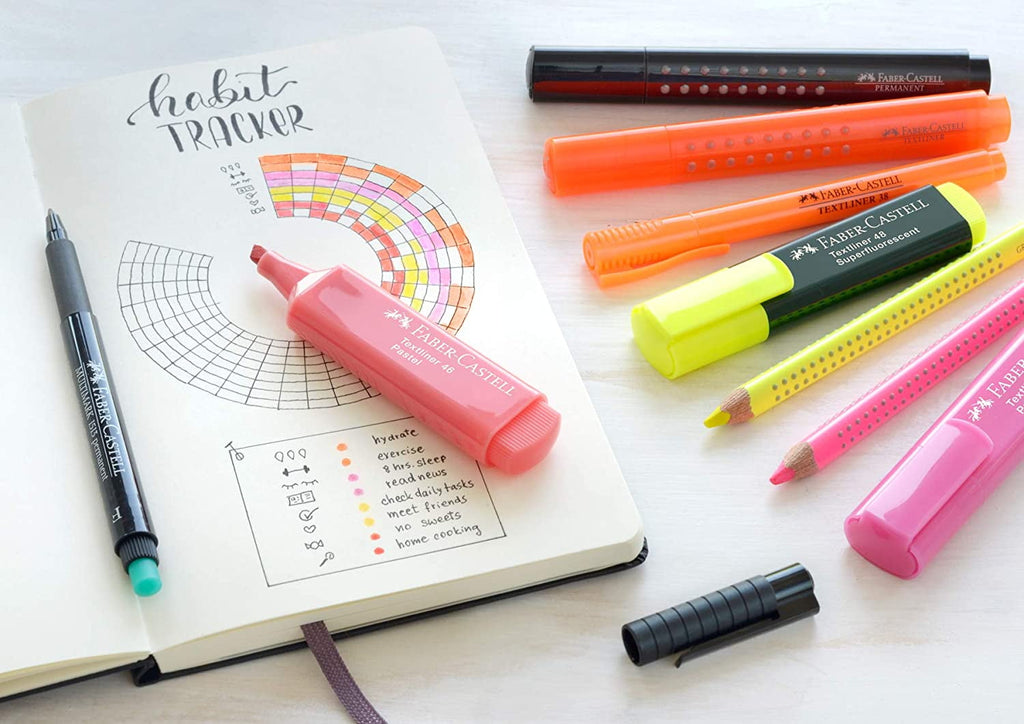 habit
TRACKER
hydrate
exercise
8 hrs. sleep
read news
check daily tasks
meet friends
no sweets
home cooking
FABER-CASTELL
MULTIMARK 1525 permanent
FABER-CASTELL
Textliner 46
Pastel
FABER-CASTELL
PERMANENT
FABER-CASTELL
FABER-CASTELL
TEXTLINER 38
FABER-CASTELL
Textliner 48
Superfluorescent